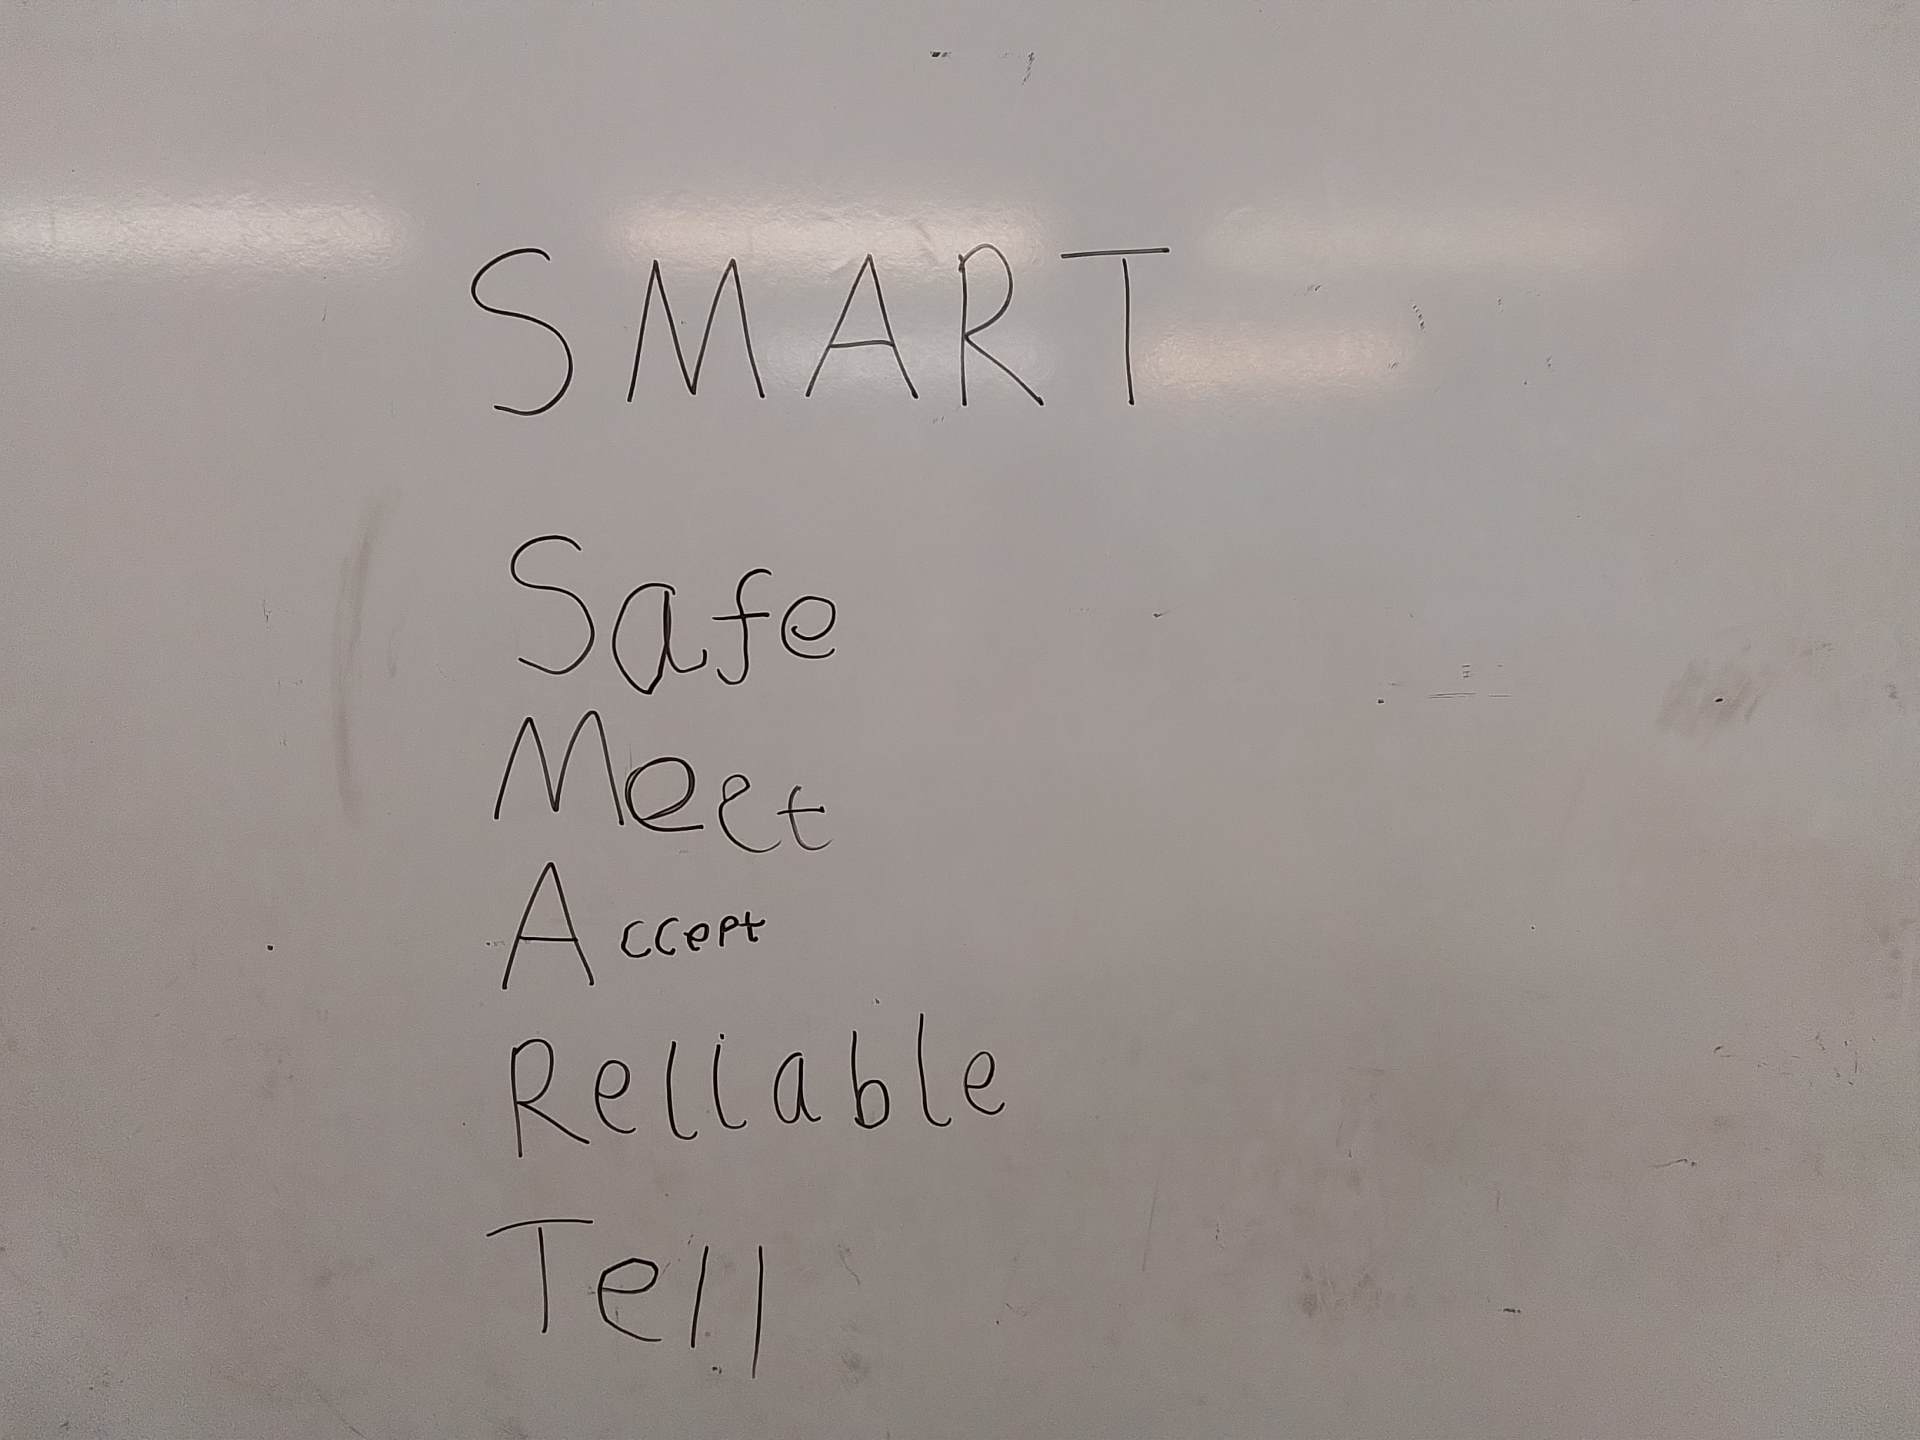 SMART
Safe
Meet
Accept
Reliable
Tell